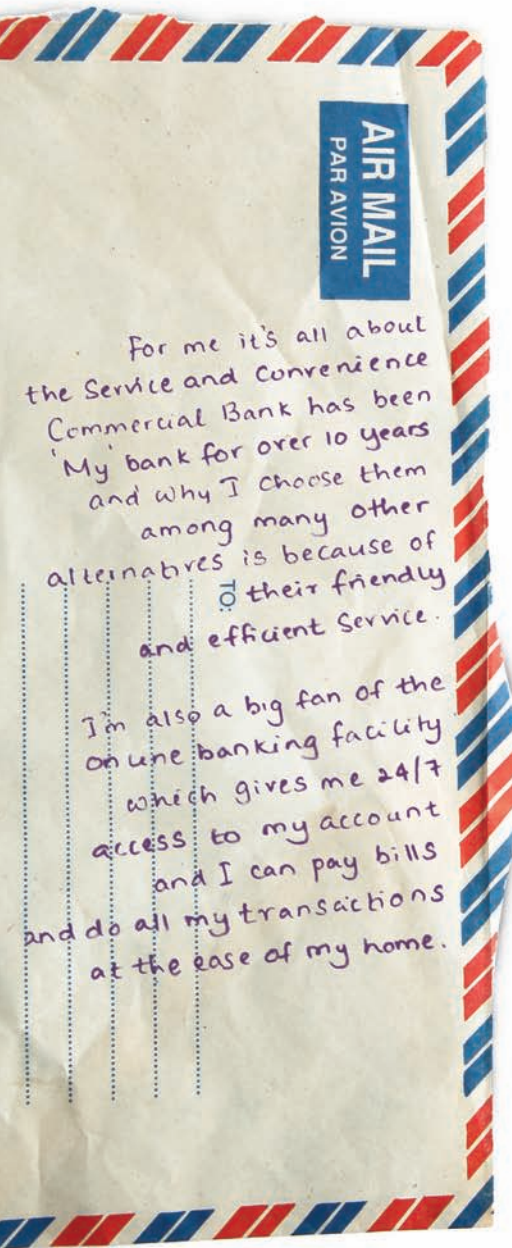 AIR MAIL
PAR AVION
For me it's all about
the Service and Convenience
Commercial Bank has been
'My' bank for over 10 years
and why I choose them
among many other
alternatives is because of
their friendly
and efficient Service.
TO:
I'm also a big fan of the
online banking facility
which gives me 24/7
access to my account
and I can pay bills
and do all my transactions
at the ease of my home.